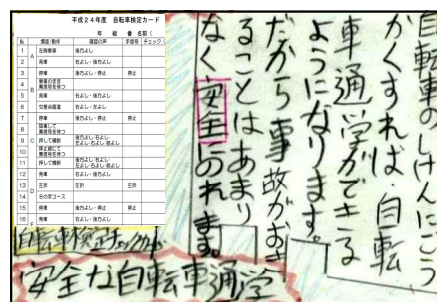 平成24年度 自転車検定カード
年 組 番 名前(
№ 場面/動作 確認の声 手信号 チェック(
1 A 左側乗車 後方よし
2 発車 右よし・後方よし
3 停車 後方よし・停止 停止
4 B 乗車のまま 青信号を待つ
5 発車 右よし・後方よし
6 交差点直進 右よし・左よし
7 停車 後方よし・停止 停止
8 降車して 青信号を待つ
9 C 押して横断 後方よし・右よし・ 左よし・右よし・前よし
10 停止線にて 青信号を待つ
11 押して横断 後方よし・右よし・ 左よし・右よし・前よし
12 発車 右よし・後方よし
13 D 左折 左折 左折
14 8の字コース
15 停車 後方よし・停止 停止
16 発車 右よし・後方よし
自転車検定チェックカード
自転車のしけんにごう
かくすれば自転
車通学ができる
ようになります。
だから事故がおき
ることはあまり
なく安全にのれます。
安全な自転車通学